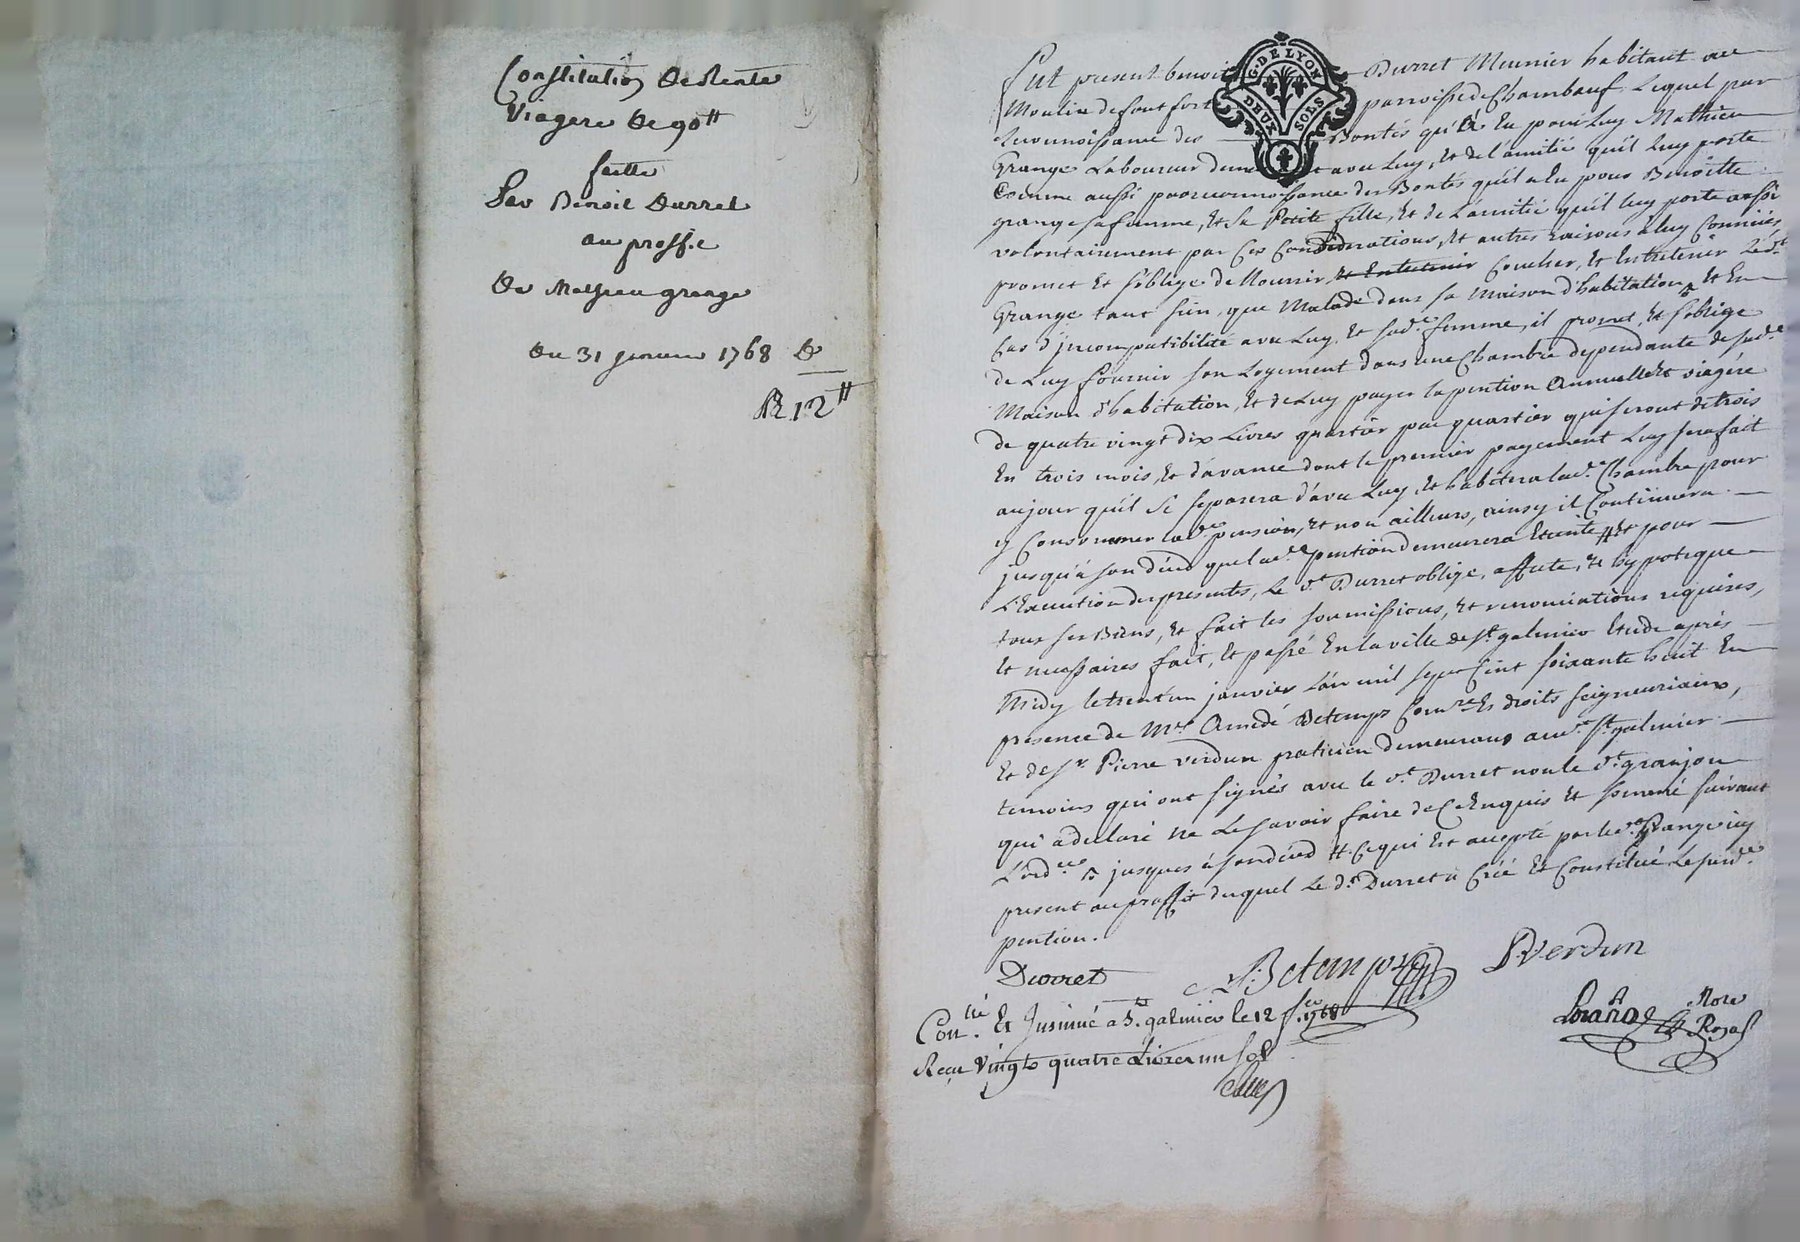 Constitution De Rente
Viagere De 90 ₶
faitte
Par Benoit Durret
au proffic
De Mathieu grange
Du 31 janvier 1768
R 12 ₶
G. DE LYON
DEUX SOLS
Fut present benoit Durret Meunier habitant au
Moulin de fontfort parroisse de Chambœuf Lequel par
reconnoissance des Bontés qu'à Eu pour Luy Mathieu
Grange Laboureur avec Luy, et de l'amitié qu'il Luy porte
Comme aussi par reconnoissance des Bontés qu'il a Eu pour Benoitte
grange sa femme, et sa Petite fille, et de L'amitié qu'il luy porte aussi
volontairement par Ces Considerations, et autres raisons à luy Connües
promet et s'oblige de Nourrir, et Entretenir Coucher, et Entretenir Ledt
Grange tant sein, que Malade dans sa Maison d'habitation, et En
Cas d'jncompatibilité avec Luy, et sade femme, il promet, et s'oblige
de Luy fournir son Logement dans une Chambre dependante de sade
Maison d'habitation, et de Luy payer la pention Annuelle et viagére
de quatre vingt dix Livres quartier par quartier qui seront de trois
En trois mois, et d'avance dont le premier payement Luy sera fait
au jour qu'il se separera d'avec Luy, et habitera lade Chambre pour
y Consommer lade pension, et non ailleurs, ainsy il Continuera
jusqu'à son décéd que lade pention demeurera Eteinte # et pour
L'Execution des presentes, Le dt Durret oblige, affecte, et hypoteque
tous ses Biens, et fait les soumissions, et renonciations requises,
et necessaires fait, et passé En la ville de St galmier Etude après
Midy le trentun janvier L'an mil sept Cent soixante huit En
presence de Mre Amedé Betemps Comre Es droits seigneuriaux,
et de Sr Pierre verdun praticien demeurans aud. St galmier
temoins qui ont signés avec le dt Durret non le dt granjon
qui à declaré ne Le savoir faire de Ce Enquis et sommé suivant
L'ordce jusques à son décéd # Ce qui Est accepté par led. Grange icy
present au proffit duquel Le dt Durret a Créé et Constitué Lesusde
pention.
Durret
Betemps
P. Verdun
Con.lé Et Jnsinué a St. galmier le 12 fer 1768
Recu Vingt quatre Livres un sol
Nore
Royal